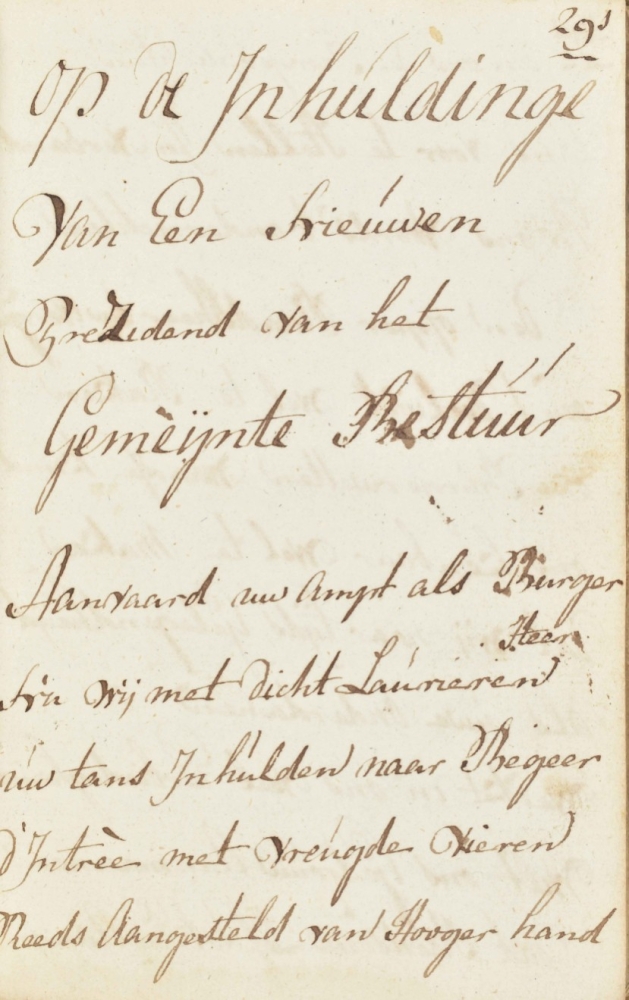 29s
op de Inhúldinge
Van Een Nieúwen
Prezidend van het
Gemeijnte Bestúúr
Aanvaard uw Ampt als Burger
Heer
Nu wij met dicht Laúrieren
úw tans Inhúlden naar Begeer
d'Intrèe met vreúgde vieren
Reeds Aangesteld van Hooger hand